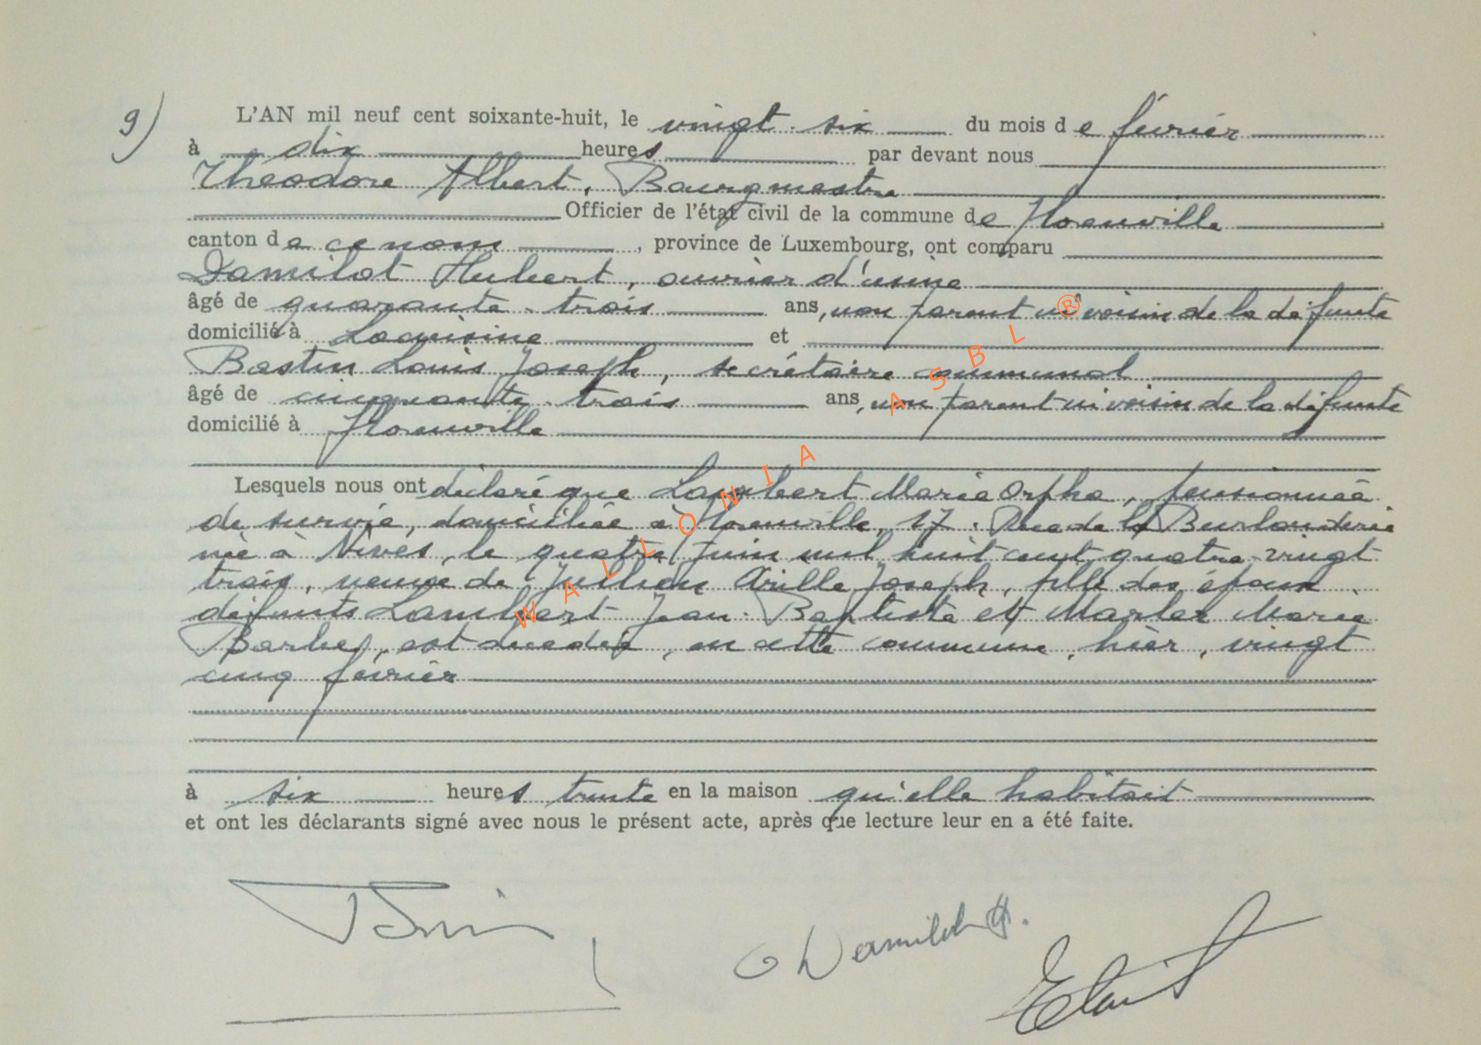 9)
L'AN mil neuf cent soixante-huit, le vingt-six du mois de février
à dix heures par devant nous
Théodore Albert, Bourgmestre
Officier de l'état civil de la commune de Florenville
canton de ce nom, province de Luxembourg, ont comparu
Damilot Hubert, ouvrier d'usine
âgé de quarante-trois ans, non parent ni voisin de la défunte
domicilié à Lacuisine et
Bastin Louis Joseph, secrétaire communal
âgé de cinquante-trois ans, non parent ni voisin de la défunte
domicilié à Florenville
Lesquels nous ont déclaré que Lambert Marie Orpha, pensionnée
de survie, domiciliée à Florenville, 17, Rue de la
née à Nives, le quatre juin mil huit cent quatre-vingt
trois, veuve de Jullien Arille Joseph, fille des époux
défunts Lambert Jean-Baptiste et Marler Marie
Barbe, est décédée, en cette commune, hier, vingt
cinq février
à six heures trente en la maison qu'elle habitait
et ont les déclarants signé avec nous le présent acte, après que lecture leur en a été faite.
WALLONIA ASBL ®